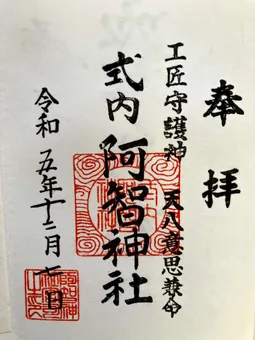 奉拝
工匠守護神 天八意思兼命
式内 阿智神社
令和五年十二月七日